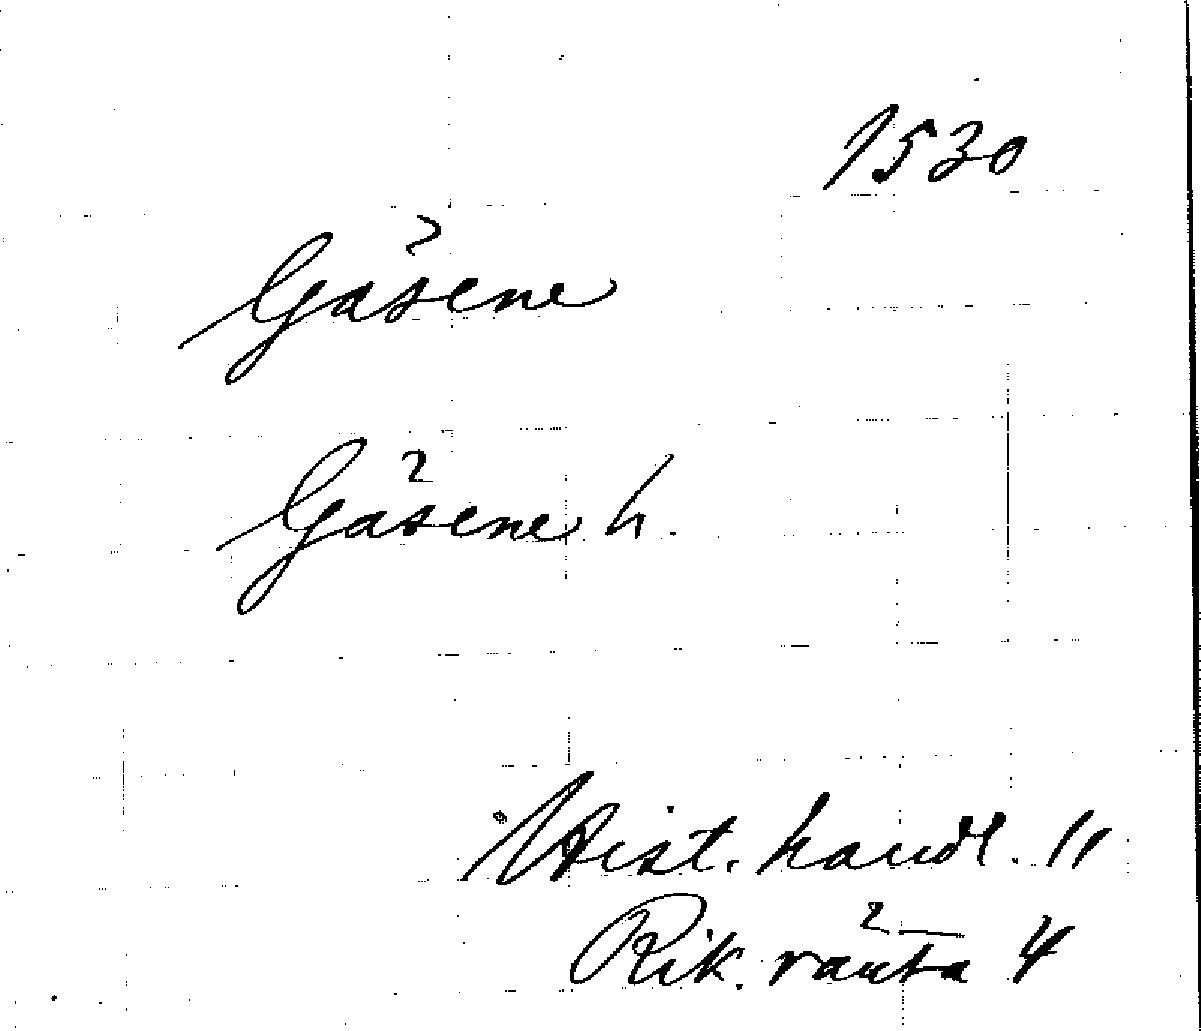 1530
Gäsene
Gäsene h.
Hist. handl. 11
Rik. ränta 4